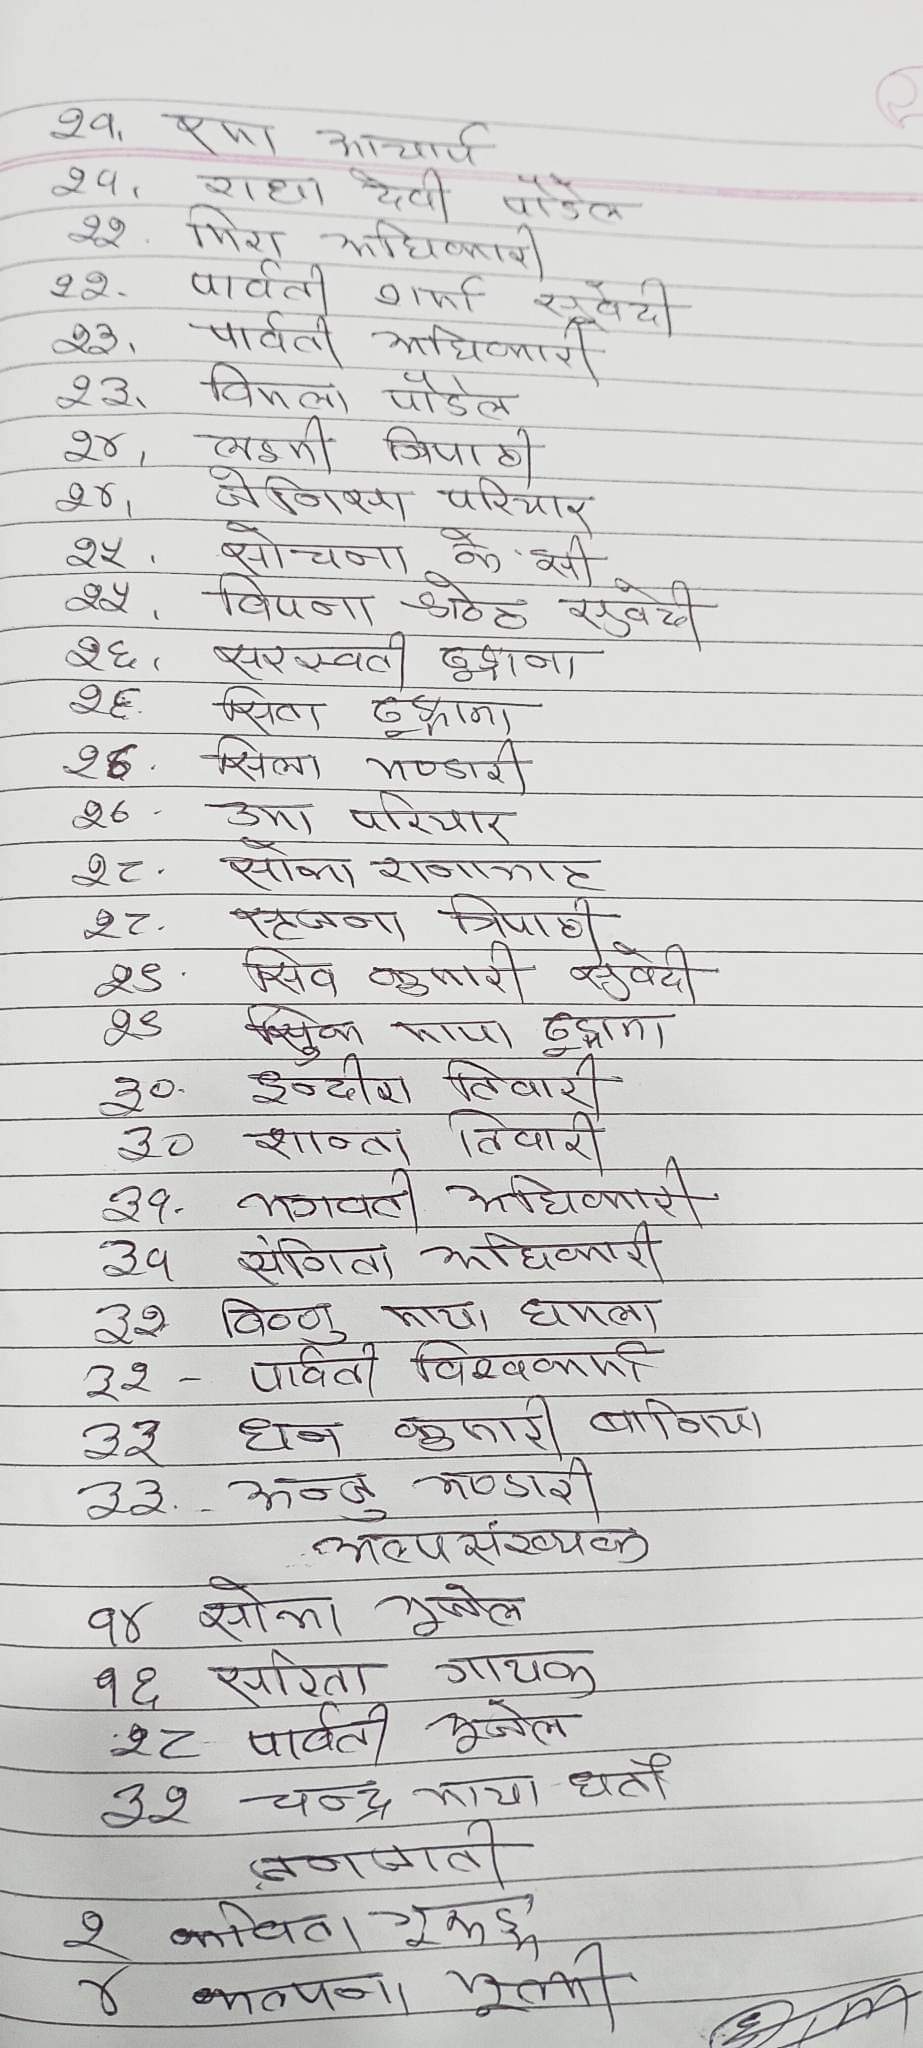 २१. रमा आचार्य
२१. राधा देवी पौडेल
२२. मिरा अधिकारी
२२. पार्वती शर्मा सुवेदी
२३. पार्वती अधिकारी
२३. विमला पौडेल
२४. लक्ष्मी त्रिपाठी
२४. जेनिसा परियार
२५. सोचना के.सी
२५. विपना श्रेष्ठ सुवेदी
२६. सरस्वती ढुङ्गाना
२६. सिता ढुङ्गाना
२७. सिला भण्डारी
२७. उमा परियार
२८. सोभा रानाभाट
२८. सृजना त्रिपाठी
२९. सिव कुमारी सुवेदी
२९ माया ढुङ्गाना
३०. इन्दीरा तिवारी
३० शान्ता तिवारी
३१. भगवती अधिकारी
३१ संगिता अधिकारी
३२ विष्णु माया धमला
३२ - पार्वती विश्वकर्मा
३३ धन कुमारी बानिया
३३. - अन्जु भण्डारी
अल्पसंख्यक
१४ सोभा भूजेल
१६ सरिता गायक
२८ पार्वती भूजेल
३२ चन्द्र माया घर्ती
जनजाती
२ कविता गुरुङ्ग
४ कल्पना